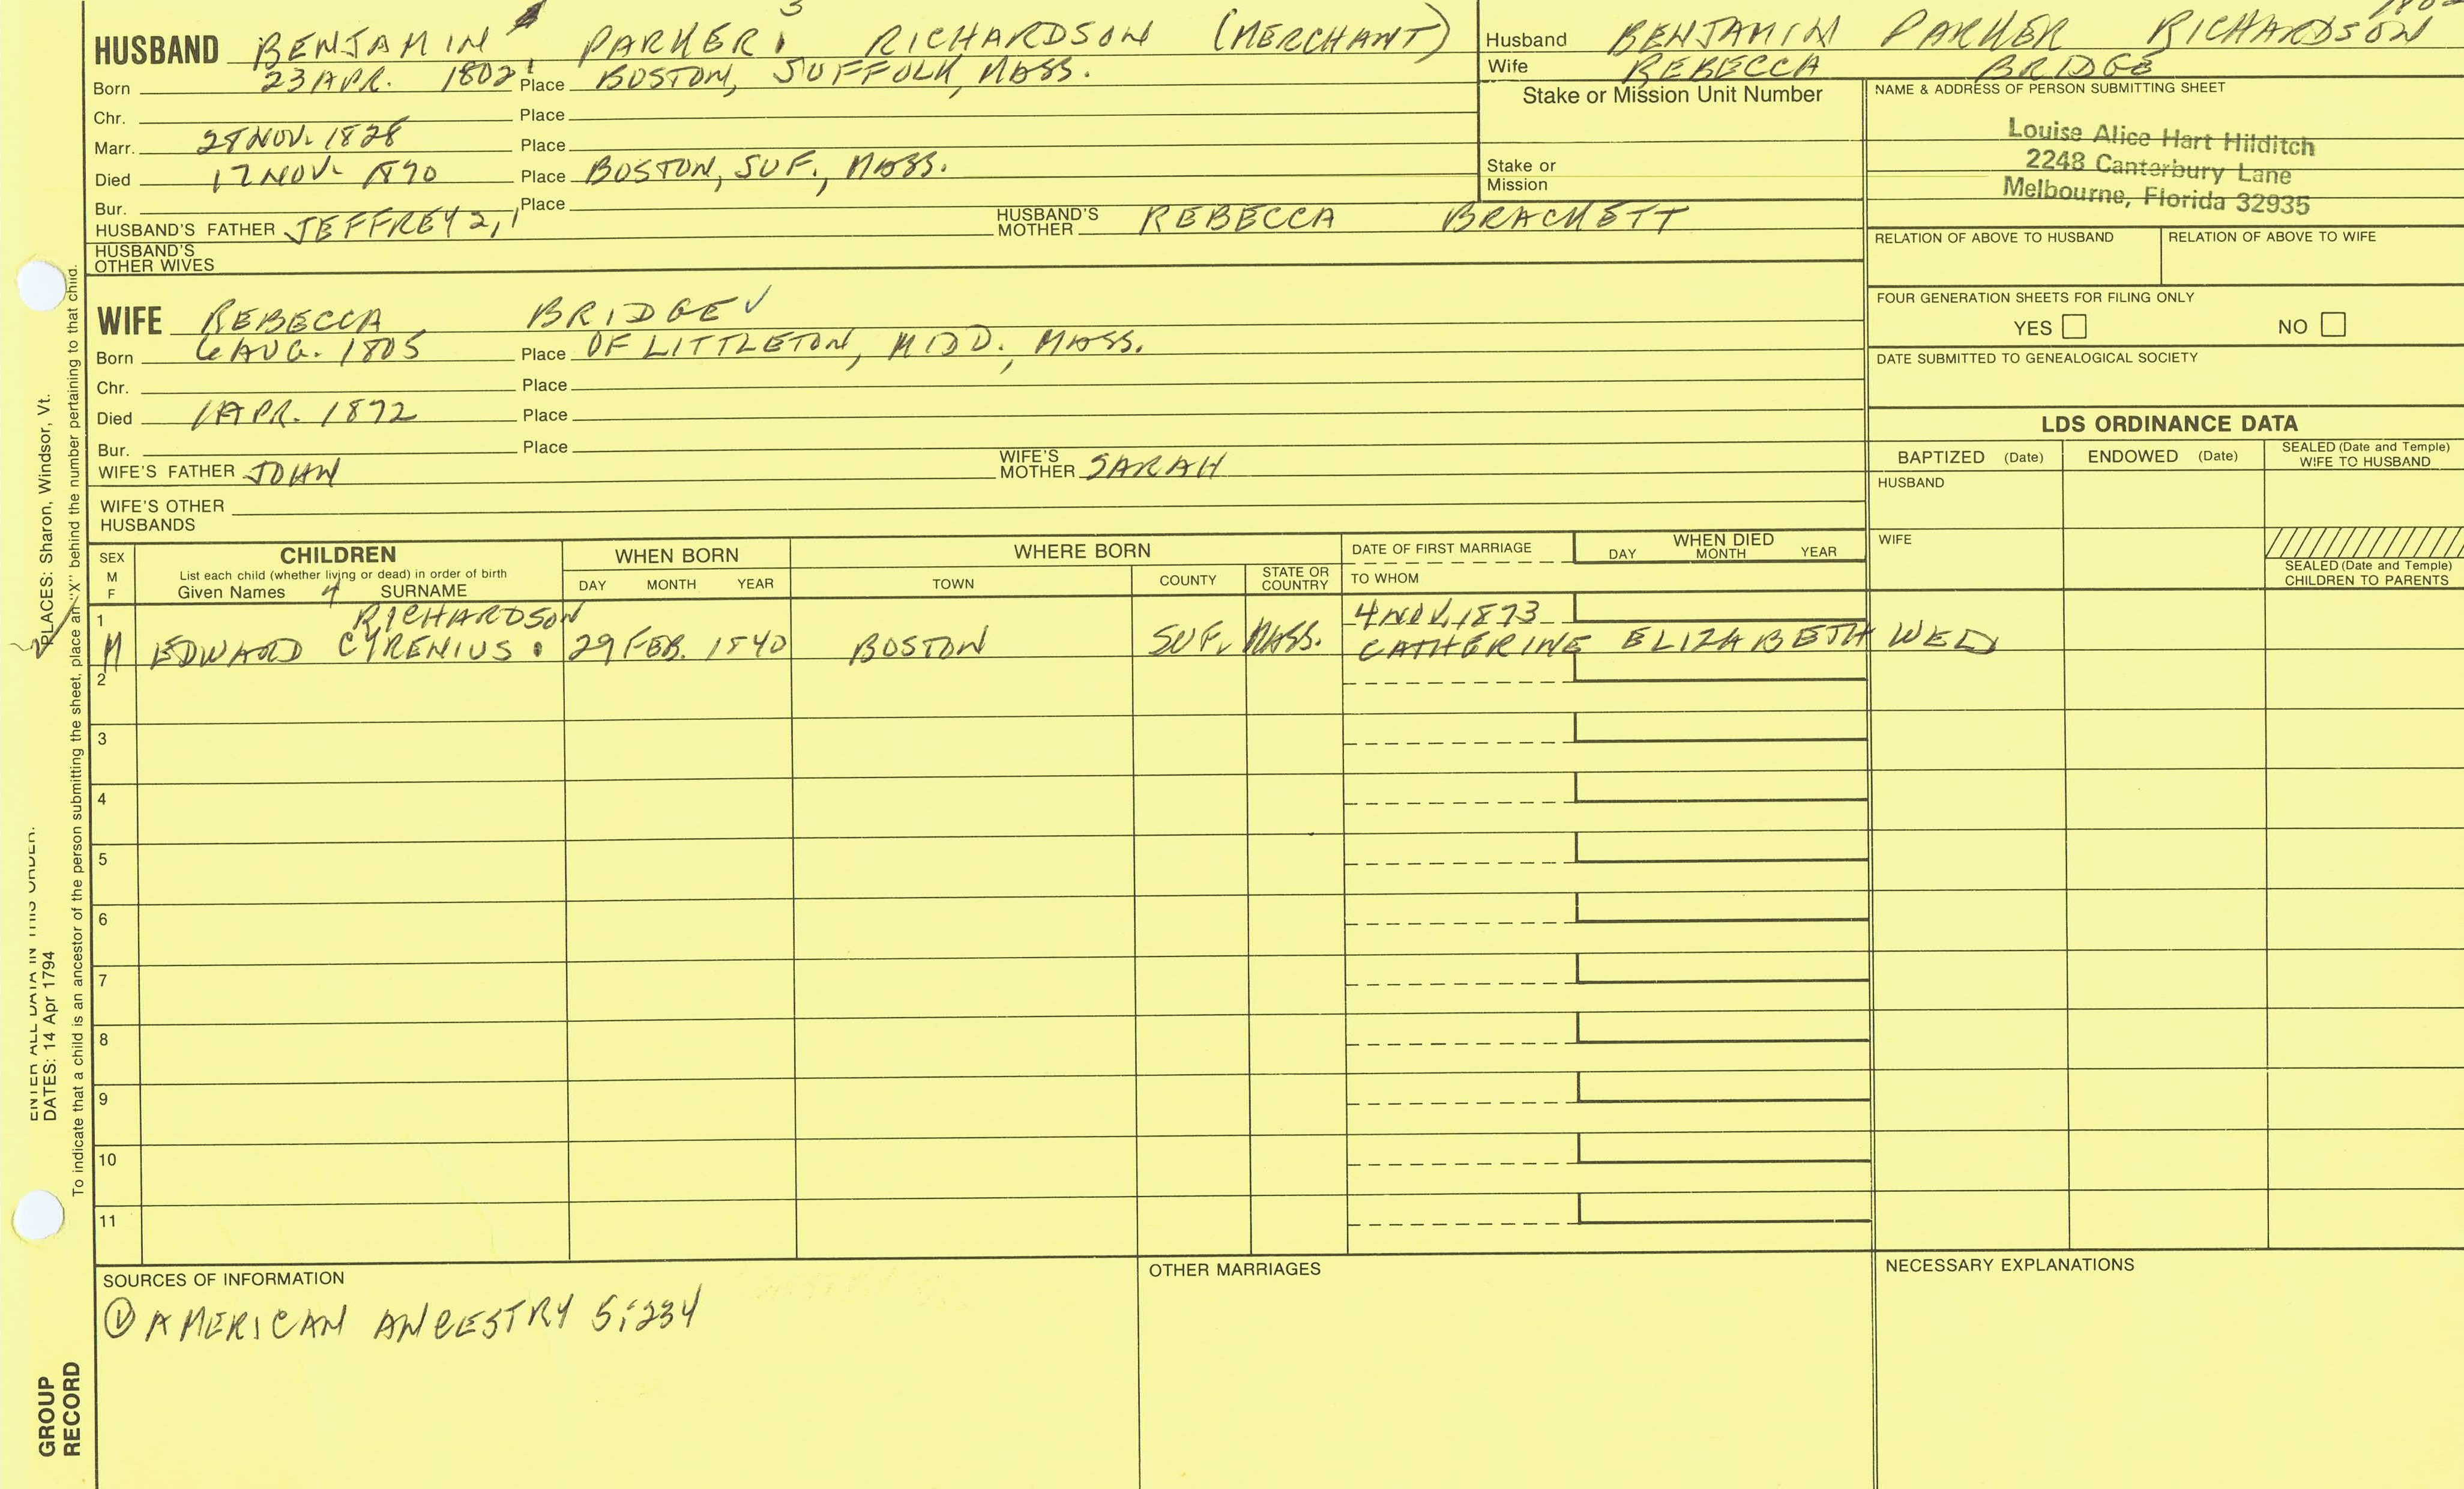 3
HUSBAND BENJAMIN PARKER RICHARDSON (MERCHANT)
Born 23 APR. 1802 Place BOSTON, SUFFOLK, MASS.
Chr. Place
Marr. 28 NOV. 1828 Place
Died 17 NOV. 1870 Place BOSTON, SUF., MASS.
Bur. Place
HUSBAND'S FATHER JEFFREY 2, 1 HUSBAND'S MOTHER REBECCA BRACKETT
HUSBAND'S
OTHER WIVES
Husband BENJAMIN PARKER RICHARDSON
Wife REBECCA BRIDGE
Stake or Mission Unit Number
Stake or
Mission
NAME & ADDRESS OF PERSON SUBMITTING SHEET
Louise Alice Hart Hilditch
2248 Canterbury Lane
Melbourne, Florida 32935
RELATION OF ABOVE TO HUSBAND RELATION OF ABOVE TO WIFE
FOUR GENERATION SHEETS FOR FILING ONLY
YES NO
DATE SUBMITTED TO GENEALOGICAL SOCIETY
WIFE REBECCA BRIDGE
Born 6 AUG. 1805 Place OF LITTLETON, MIDD., MASS.
Chr. Place
Died 1 APR. 1872 Place
Bur. Place
WIFE'S FATHER JOHN WIFE'S MOTHER SARAH
WIFE'S OTHER
HUSBANDS
LDS ORDINANCE DATA
BAPTIZED (Date) ENDOWED (Date) SEALED (Date and Temple) WIFE TO HUSBAND
HUSBAND
WIFE
SEALED (Date and Temple)
CHILDREN TO PARENTS
SEX
M
F
CHILDREN
List each child (whether living or dead) in order of birth
Given Names 4 SURNAME
WHEN BORN
DAY MONTH YEAR
WHERE BORN
TOWN COUNTY STATE OR COUNTRY
DATE OF FIRST MARRIAGE
TO WHOM
WHEN DIED
DAY MONTH YEAR
1 RICHARDSON 4 NOV. 1873
M EDWARD CYRENIUS 29 FEB. 1840 BOSTON SUF. MASS. CATHERINE ELIZABETH WED
2
3
4
5
6
7
8
9
10
11
SOURCES OF INFORMATION
① AMERICAN ANCESTRY 5:234
OTHER MARRIAGES
NECESSARY EXPLANATIONS
ENTER ALL DATA IN THIS ORDER:
DATES: 14 Apr 1794
PLACES: Sharon, Windsor, Vt.
To indicate that a child is an ancestor of the person submitting the sheet, place an "X" behind the number pertaining to that child.
GROUP
RECORD